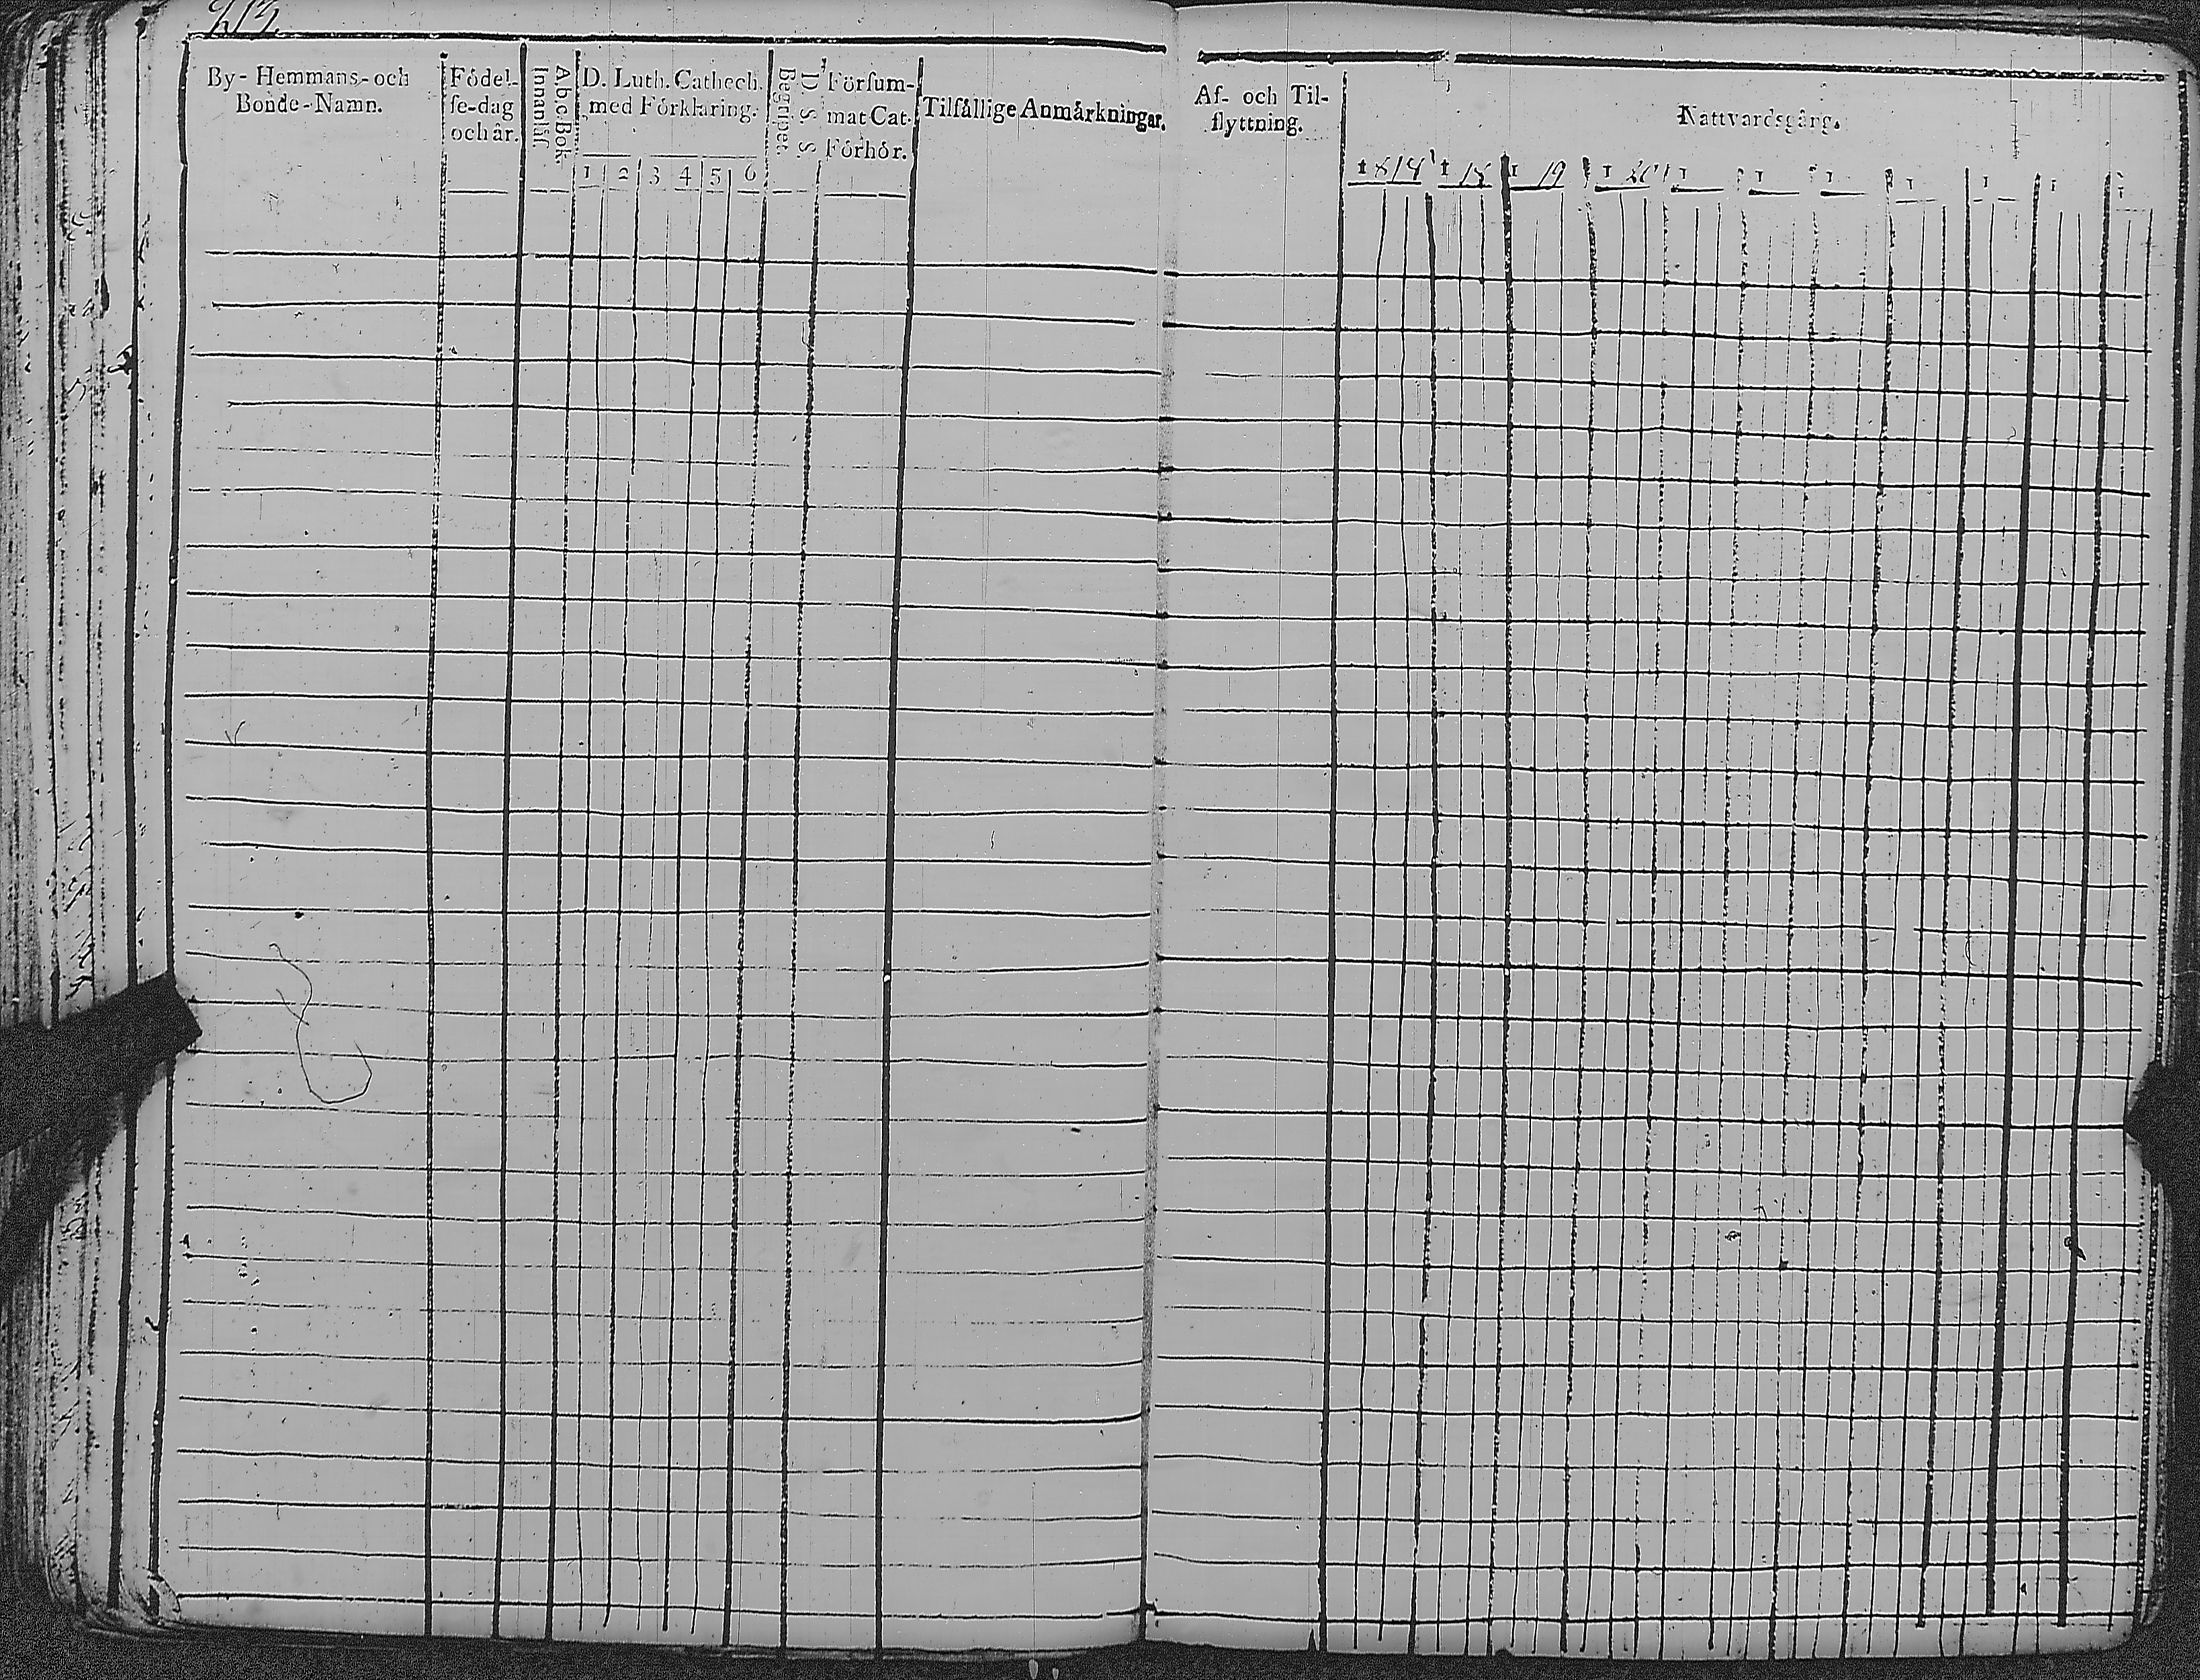 213.
By- Hemmans- och
Bonde-Namn.
Födel-
se-dag
och år.
Ab.c.Bok-
Innanläs.
D. Luth. Cathech.
med Förklaring.
1 2 3 4 5 6
D. S. S.
Begripet.
Försum-
mat Cat.
Förhör.
Tilfällige Anmärkningar.
Af- och Til-
flyttning.
Nattvardsgång.
1 18 1 19 1 20 1 1 1 1 1 1 1